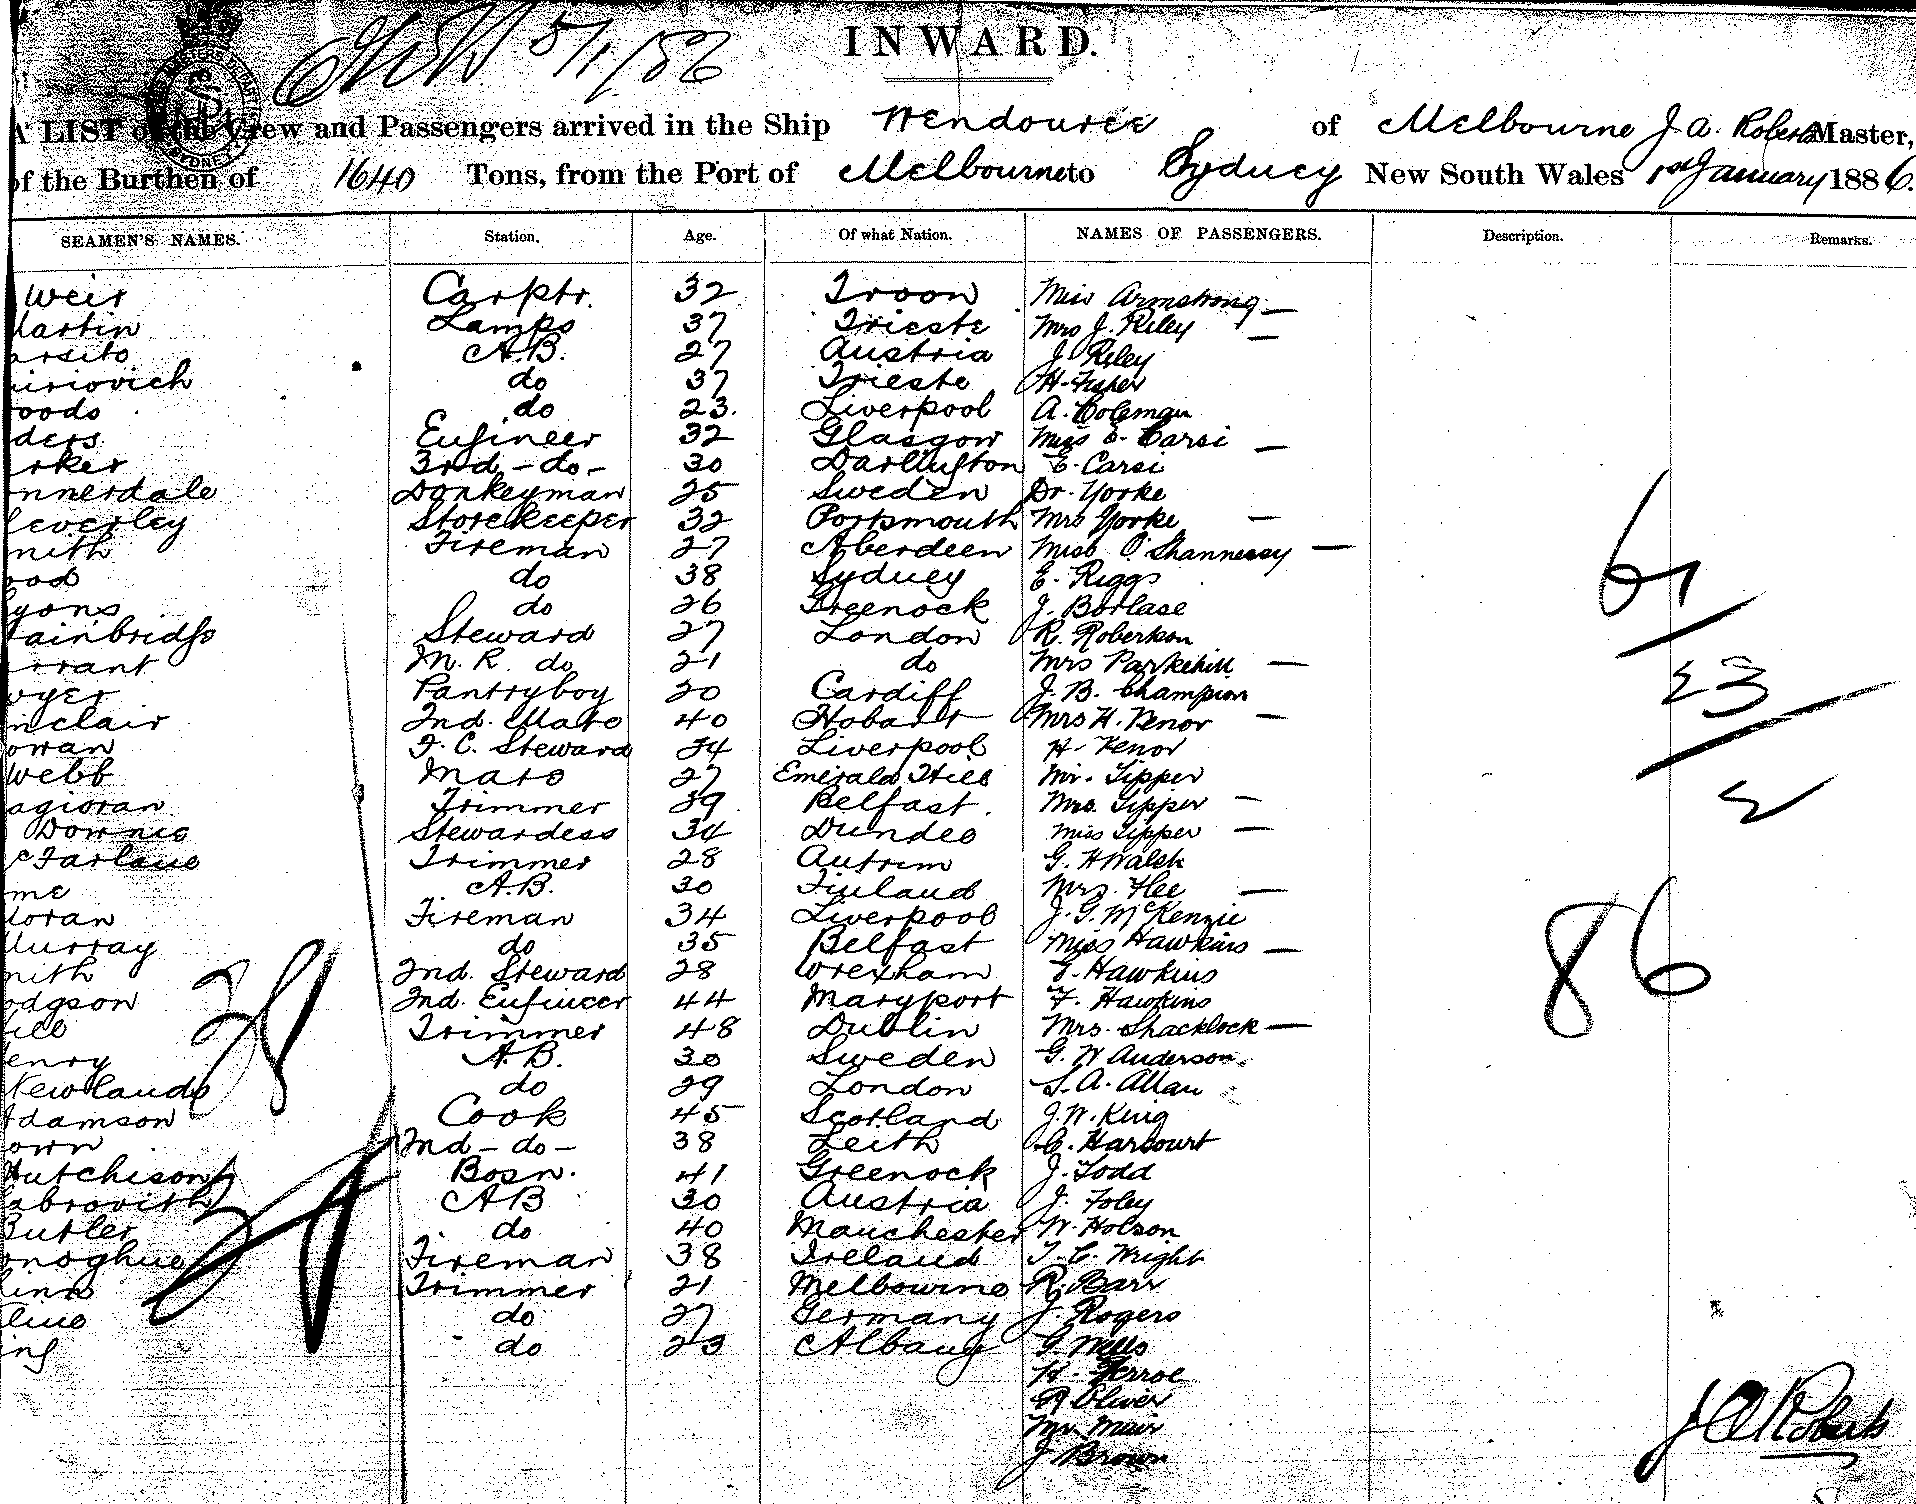 5/1/86
INWARD.
A LIST of the Crew and Passengers arrived in the Ship Wendouree of Melbourne J. A. Roberts Master,
of the Burthen of 1640 Tons, from the Port of Melbourne to Sydney New South Wales 1st January 1886.
SEAMEN'S NAMES. Station. Age. Of what Nation. NAMES OF PASSENGERS. Description. Remarks.
Weir Carptr. 32 Troon Miss Armstrong —
Martin Lamps 37 Trieste Mrs J. Riley —
arsito A.B. 27 Austria J. Riley
iriovich do 37 Trieste H. Fisher
oods do 23. Liverpool A. Coleman
ders Engineer 32 Glasgow Miss E. Carsi —
arker 3rd - do - 30 Darlington E. Carsi
nnerdale Donkeyman 25 Sweden Dr. Yorke
leverley Storekeeper 32 Portsmouth Mrs Yorke —
mith Fireman 27 Aberdeen Miss O'Shannessy —
ood do 38 Sydney E. Riggs
yons do 26 Greenock J. Borlase
ainbridge Steward 27 London R. Robertson
arrant M. R. do 21 do Mrs Parkehill —
wyer Pantryboy 20 Cardiff J. B. Champion
inclair 2nd. Mate 40 Hobart Mrs H. Venor —
owan F. C. Steward 34 Liverpool H. Venor
Webb Mate 27 Emerald Hill Mr. Tipper
agioran Trimmer 39 Belfast. Mrs. Tipper —
Downie Stewardess 34 Dundee Miss Tipper —
cFarlane Trimmer 28 Antrim G. H Walsh
me A.B. 30 Finland Mrs. Flee —
oran Fireman 34 Liverpool J. G. McKenzie
Murray do 35 Belfast Miss Hawkins —
mith 2nd. Steward 28 Wrexham E. Hawkins
odgson 2nd. Engineer 44 Maryport F. Hawkins
ill Trimmer 48 Dublin Mrs. Shacklock —
enry A.B. 30 Sweden G. W Anderson
Newlands do 29 London S. A. Allan
damson Cook 45 Scotland J. W. King
own 2nd - do - 38 Leith C. Harcourt
Hutchison Bosn. 41 Greenock J. Todd
abrovith AB 30 Austria J. Foley
Butler do 40 Manchester W. Holson
onoghue Fireman 38 Ireland T. C. Wright
linn Trimmer 21 Melbourne R. Barr
line do 27 Germany J. Rogers
ing do 23 Albany G. Mills
H. Perroe
R Oliver
Mr Muir
J Brown
61
23
2
86
J A Roberts